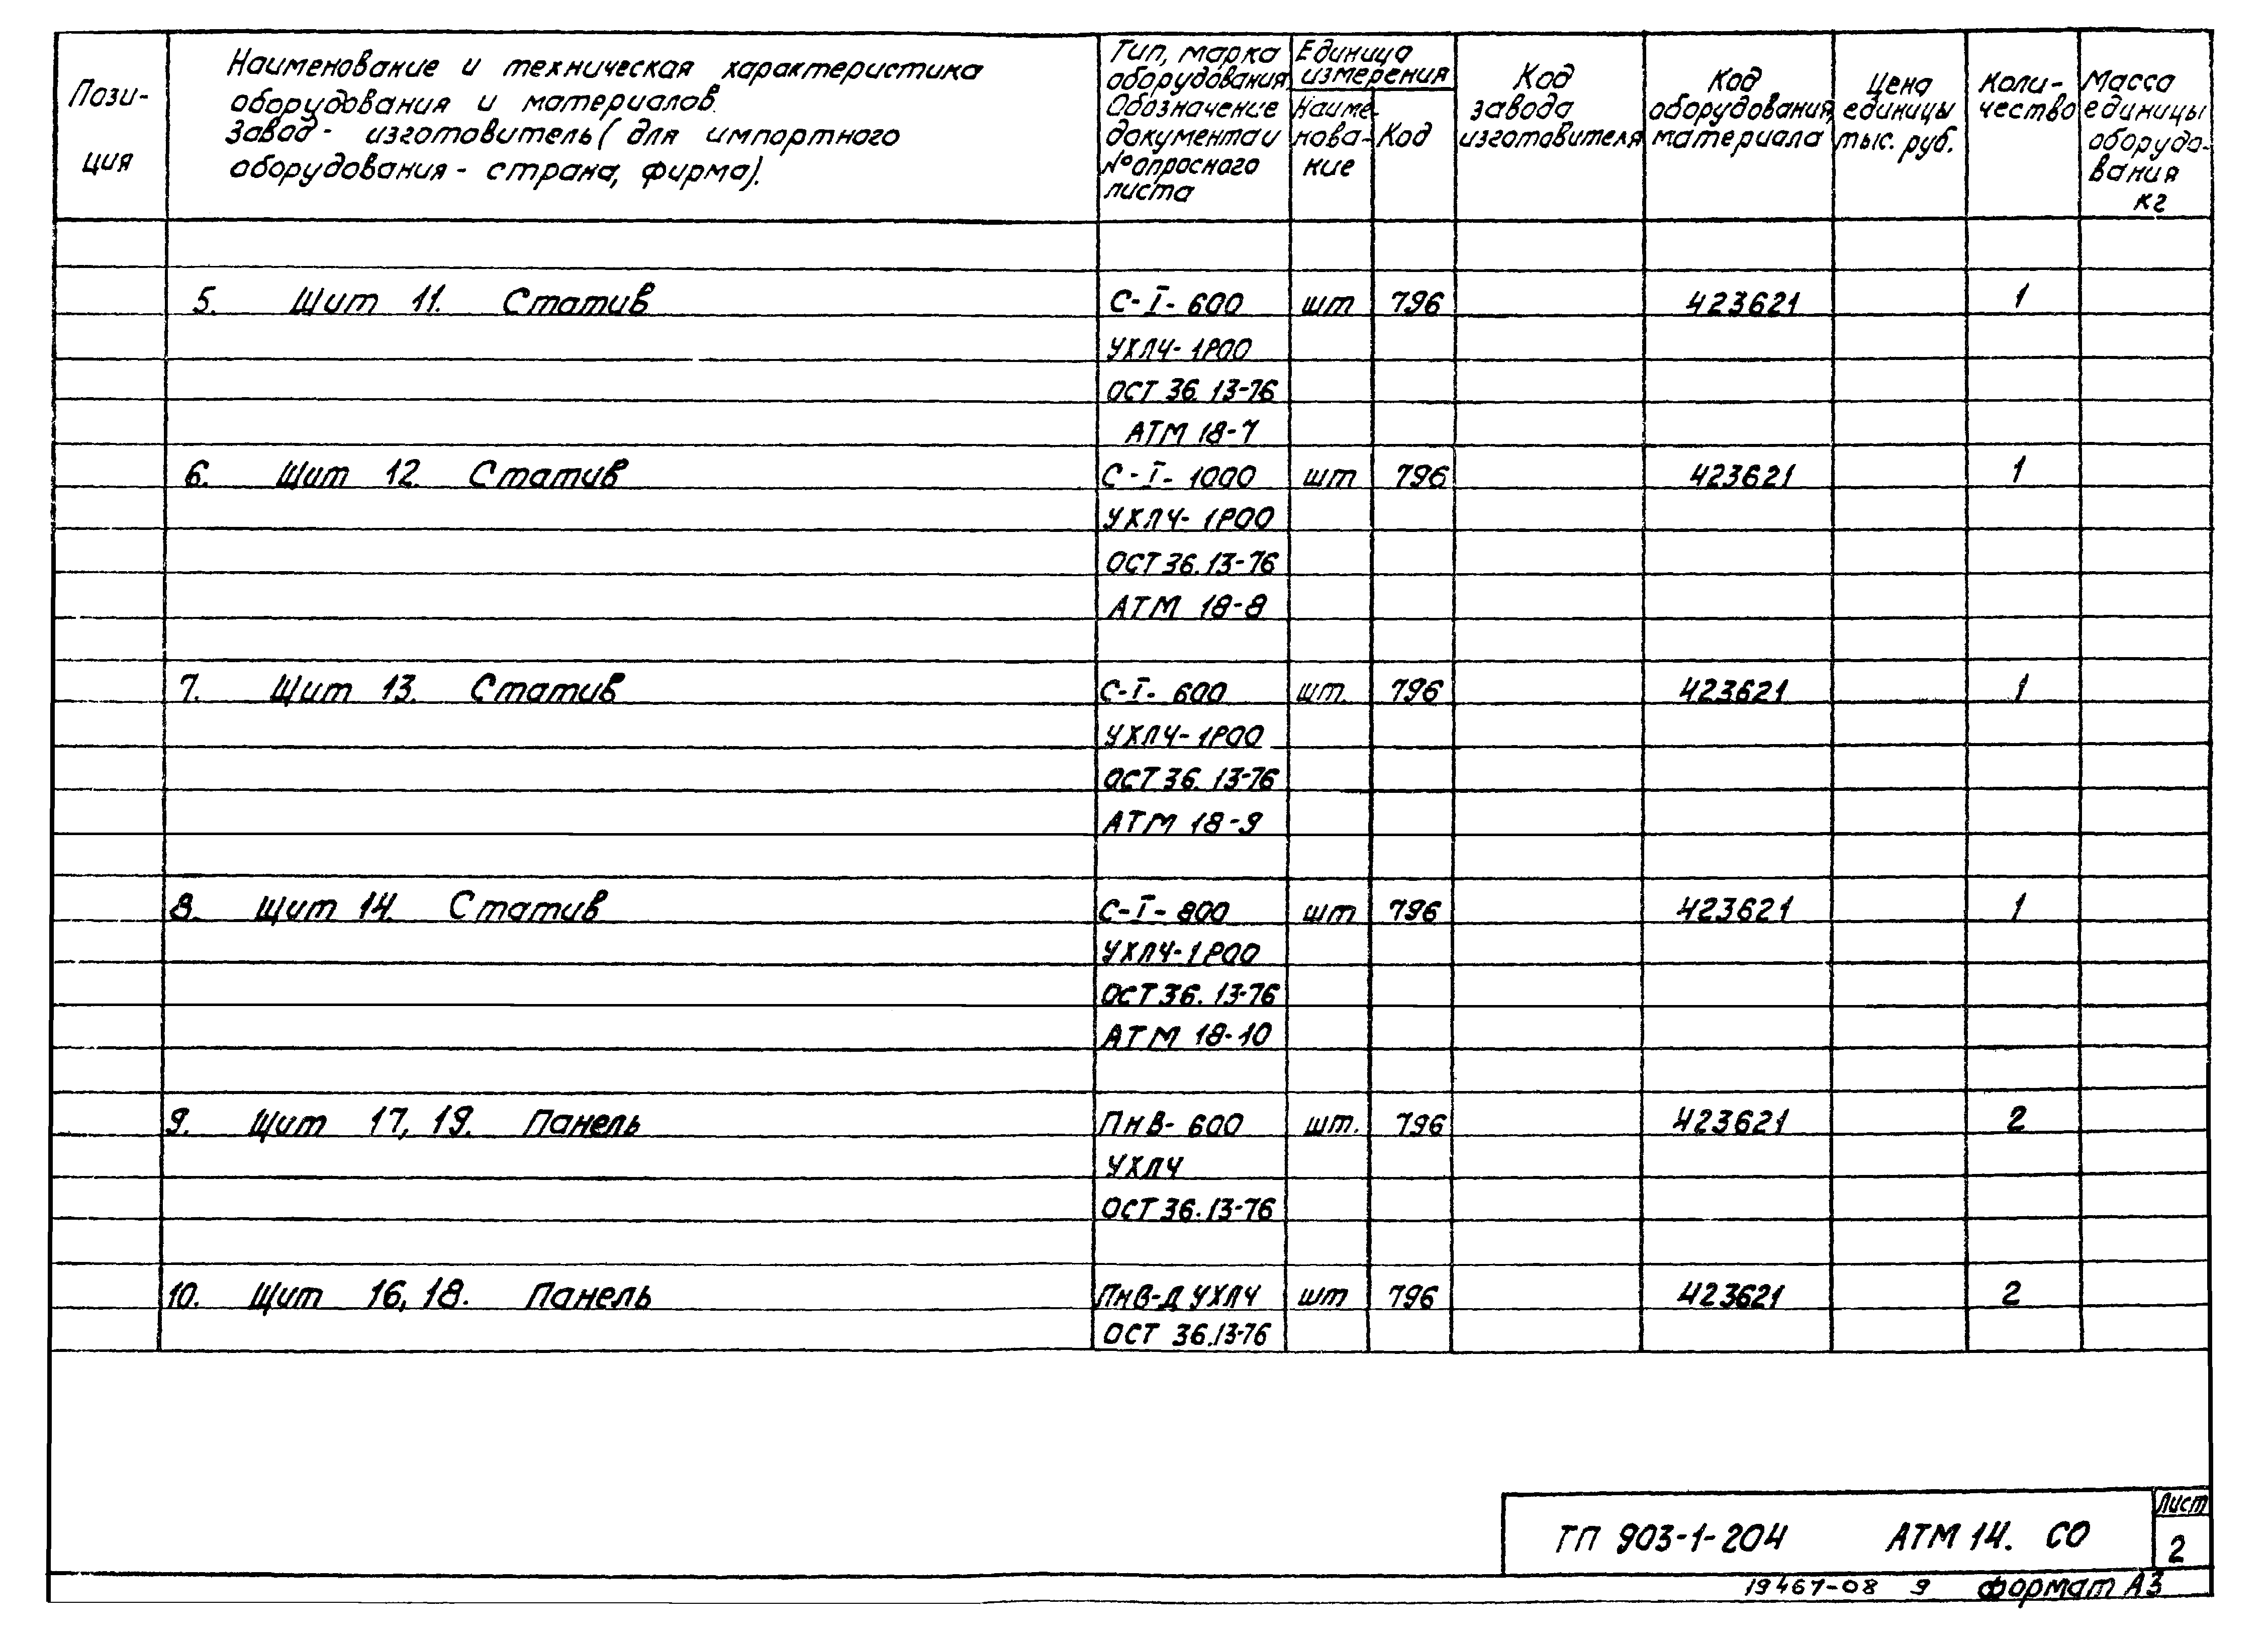 Пози-
ция
Наименование и техническая характеристика
оборудования и материалов.
Завод - изготовитель (для импортного
оборудования - страна, фирма).
Тип, марка
оборудования
Обозначение
документа и
№ опросного
листа
Единица
измерения
Наиме-
нова-
ние
Код
Код
завода
изготовителя
Код
оборудования,
материала
Цена
единицы
тыс. руб.
Коли-
чество
Масса
единицы
оборудо-
вания
кг
5. Щит 11. Статив С-I-600 шт 796 423621 1
УХЛ4-1Р00
ОСТ 36.13-76
АТМ 18-7
6. Щит 12. Статив С-I-1000 шт 796 423621 1
УХЛ4-1Р00
ОСТ 36.13-76
АТМ 18-8
7. Щит 13. Статив С-I-600 шт. 796 423621 1
УХЛ4-1Р00
ОСТ 36.13-76
АТМ 18-9
8. Щит 14. Статив С-I-800 шт 796 423621 1
УХЛ4-1Р00
ОСТ 36.13-76
АТМ 18-10
9. Щит 17, 19. Панель ПнВ-600 шт. 796 423621 2
УХЛ4
ОСТ 36.13-76
10. Щит 16, 18. Панель ПнВ-Д УХЛ4 шт 796 423621 2
ОСТ 36.13-76
ТП 903-1-204 АТМ 14. СО
Лист
2
19467-08 9 Формат А3